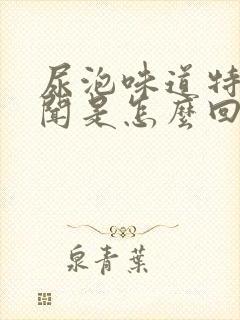 尿泡味道特
闻是怎麼回
泉青葉